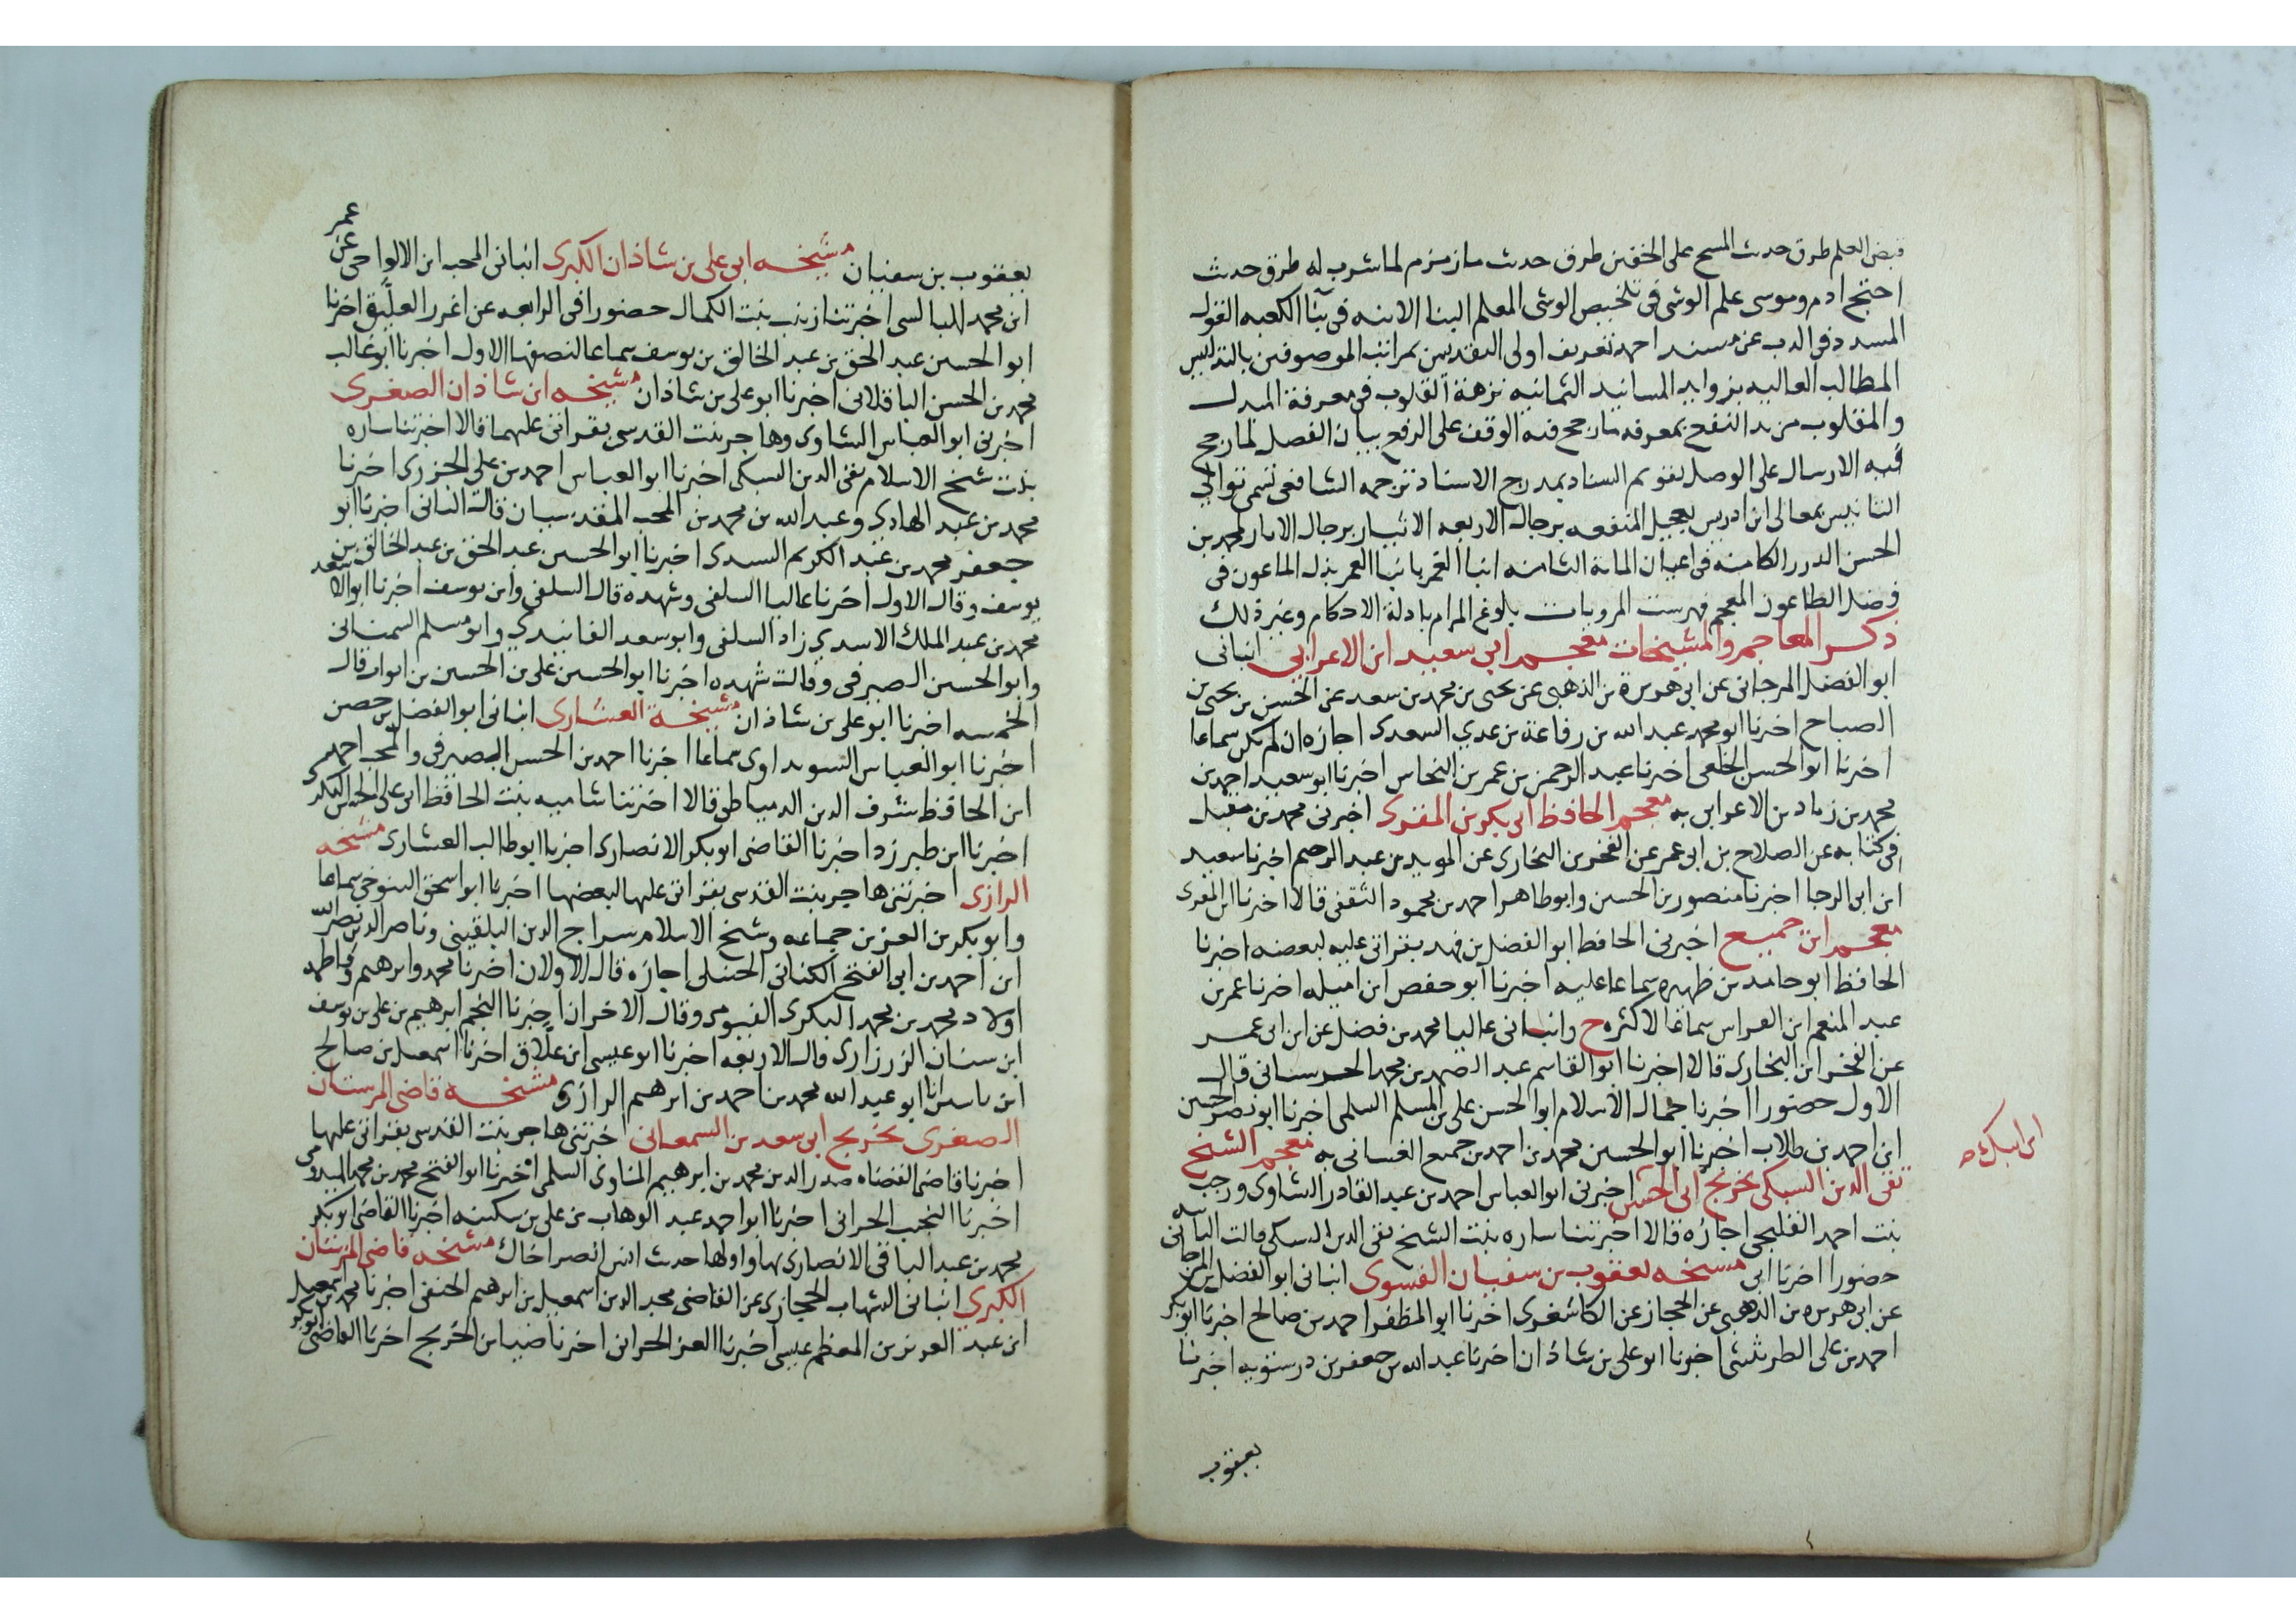 قبض العلم طرق حدیث المسح على الخفین طرق حدیث ماء زمزم لما شرب له طرق حدیث
احتج ادم وموسى علم الوشى فی تلخیص الوشى المعلم البنا الابنه فی بنا الكعبه القول
المسدد فی الذب عن مسند احمد تعریف اولى التقدیس بمراتب الموصوفین بالتدلیس
المطالب العالیه بزواید المسانید الثمانیه نزهة القلوب فی معرفة المبدل
والمقلوب مزید النفع بمعرفه ما رجح فیه الوقف على الرفع بیان الفصل لما رجح
فیه الارسال على الوصل تقویم السناد بمدرج الاسناد ترجمه الشافعی تسمى توالي
التانیس بمعالى ابن ادریس تعجیل المنفعه برجال الاربعه الایثار برجال الاثار لمحمد بن
الحسن الدرر الكامنه فی اعیان المایة الثامنه انبا الغمر بانبا العمر بذل الماعون فی
فضل الطاعون المعجم فهرست المرویات بلوغ المرام بادلة الاحكام وغیر ذلك
ذكر المعاجم والمشیخات معجم ابی سعید ابن الاعرابی انبانى
ابو الفضل المرجانى عن ابی هریرة بن الذهبی عن یحیى بن محمد بن سعد عن الحسن بن یحیى بن
الصباح اخبرنا ابو محمد عبد الله بن رفاعة بن غدیر السعدى اجازه ان لم یكن سماعا
اخبرنا ابو الحسن الخلعی اخبرنا عبد الرحمن بن عمر بن النحاس اخبرنا ابو سعید احمد بن
محمد بن زیاد بن الاعرابی به معجم الحافظ ابی بكر بن المقرى اخبرنى محمد بن مقبل
فی كتابه عن الصلاح بن ابی عمر عن الفخر بن البخارى عن الموید بن عبد الرحیم اخبرنا سعید
ابن ابی الرجا اخبرنا منصور بن الحسین وابو طاهر احمد بن محمود الثقفی قالا اخبرنا ابن المقرى
معجم ابن جمیع اخبرنى الحافظ ابو الفضل بن فهد بقراتى علیه لبعضه اخبرنا
الحافظ ابو حامد بن ظهیره سماعا علیه اخبرنا ابو حفص ابن امیله اخبرنا عمر بن
عبد المنعم ابن القواس سماعا لاكثره ح وانبانى عالیا محمد بن فضل عن ابن ابی عمر
عن الفخر ابن البخارى قالا اخبرنا ابو القاسم عبد الصمد بن محمد الحرستانى قال
الاول حضورا اخبرنا جمال الاسلام ابو الحسن على بن المسلم السلمى اخبرنا ابو نصر الحسین
ابن احمد بن طلاب اخبرنا ابو الحسین محمد بن احمد بن جمیع الغسانى به معجم الشیخ
تقی الدین السبكى تخریج ابی الحسین اخبرنى ابو العباس احمد بن عبد القادر الشاوى ورجب
ابن ایبك ه
بنت احمد القلیجى اجازه قالا اخبرتنا ساره بنت الشیخ تقی الدین السبكى قالت الثانیه
حضورا اخبرنا ابی مشیخه یعقوب بن سفیان الفسوى انبانى ابو الفضل المرجانى
عن ابی هریره بن الذهبی عن الحجار عن الكاشغرى اخبرنا ابو المظفر احمد بن صالح اخبرنا ابو بكر
احمد بن على الطریثیثى اخبرنا ابو على بن شاذان اخبرنا عبد الله بن جعفر بن درستویه اخبرنا
یعقوب
یعقوب بن سفیان مشیخه ابی على بن شاذان الكبرى انبانى المحب ابن الالواحى عن عمر
ابن محمد البالسى اخبرتنا زینب بنت الكمال حضورا فی الرابعه عن اغر العلیق اخبرنا
ابو الحسین عبد الحق بن عبد الخالق بن یوسف سماعا لنصفها الاول اخبرنا ابو غالب
محمد بن الحسن الباقلانى اخبرنا ابو على بن شاذان مشیخه ابن شاذان الصغرى
اخبرنى ابو العباس الشاوى وهاجر بنت القدسى بقراتى علیهما قالا اخبرتنا ساره
بنت شیخ الاسلام تقی الدین السبكى اخبرنا ابو العباس احمد بن على الجزرى اخبرنا
محمد بن عبد الهادى وعبد الله بن محمد بن المحب المقدسیان قالت الثانى اخبرنا ابو
جعفر محمد بن عبد الكریم السیدى اخبرنا ابو الحسین عبد الحق بن عبد الخالق بن
یوسف وقال الاول اخبرنا عالیا السلفی وشهده قال السلفی وابن یوسف اخبرنا ابو سعد
محمد بن عبد الملك الاسدى زاد السلفی وابو سعد الفانیدى وابو مسلم السمنانى
وابو الحسین الصیرفی وقالت شهده اخبرنا ابو الحسین على بن الحسین بن ایوب قال
الخمسه اخبرنا ابو على بن شاذان مشیخة العشارى انبانى ابو الفضل بن حصن
اخبرنا ابو العباس السویداوى سماعا اخبرنا احمد بن الحسن المصرفی والمحب احمد
ابن الحافظ شرف الدین الدمیاطى قالا اخبرتنا شامیه بنت الحافظ ابی على الحسن البكرى
اخبرنا ابن طبرزد اخبرنا القاضى ابو بكر الانصارى اخبرنا ابو طالب العشارى مشیخه
الرازى اخبرتنى هاجر بنت القدسى بقراتى علیها لبعضها اخبرنا ابو اسحق التنوخى سماعا
وابو بكر بن العز بن جماعه وشیخ الاسلام سراج الدین البلقینى وناصر الدین نصر الله
ابن احمد بن ابی الفتح الكنانى الحنبلى اجازه قال الاولان اخبرنا محمد وابرهیم وفاطمه
اولاد محمد بن محمد البكرى الفیومى وقال الاخران اخبرنا النجم ابرهیم بن على بن یوسف
ابن سنان الزرزارى قال الاربعه اخبرنا ابو عیسى ابن علاق اخبرنا اسمعیل بن صالح
ابن یاسین انا ابو عبد الله محمد بن احمد بن ابرهیم الرازى مشیخه قاضى المرستان
الصغرى تخریج ابی سعد بن السمعانى اخبرتنى هاجر بنت القدسى بقراتى علیها
اخبرنا قاضى القضاه صدر الدین محمد بن ابرهیم المناوى السلمى اخبرنا ابو الفتح محمد بن محمد المیدومى
اخبرنا النجیب الحرانى اخبرنا ابو احمد عبد الوهاب بن على بن سكینه اخبرنا القاضى ابو بكر
محمد بن عبد الباقی الانصارى بها واولها حدیث انس انصر اخاك مشیخه قاضى المرستان
الكبرى انبانى الشهاب الحجازى عن القاضى مجد الدین اسمعیل بن ابرهیم الحنفی اخبرنا محمد بن اسمعیل
ابن عبد العزیز بن المعظم عیسى اخبرنا العز الحرانى اخبرنا ضیا بن الخریج اخبرنا القاضى ابو بكر